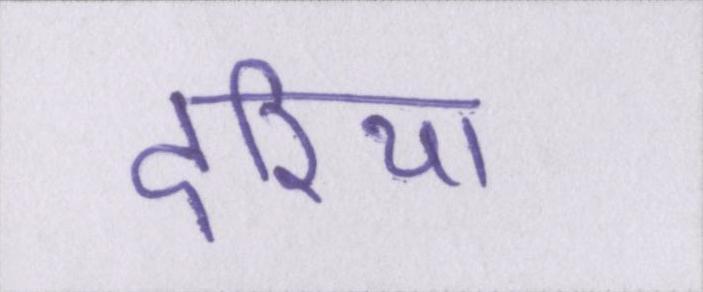 दरिया